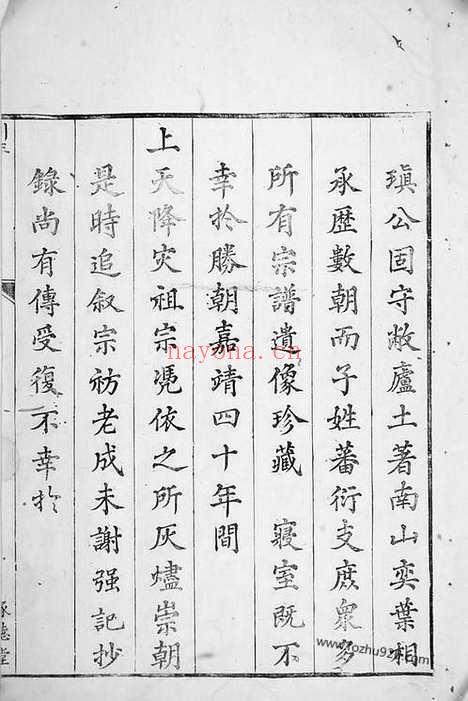 瑱公固守敝廬土著南山奕葉相
承歷數朝而子姓蕃衍支庶衆多
所有宗譜遺像珍藏　寢室既不
幸於勝朝嘉靖四十年間
上天降灾祖宗凭依之所灰燼崇朝
是時追叙宗祊老成未謝强記抄
錄尚有傳受復不幸於
德堂
nayona.cn